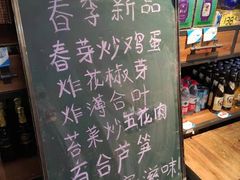 春季新品
春芽炒鸡蛋
炸花椒芽
炸薄合叶
苔菜炒五花肉
百合芦笋
滋味
138